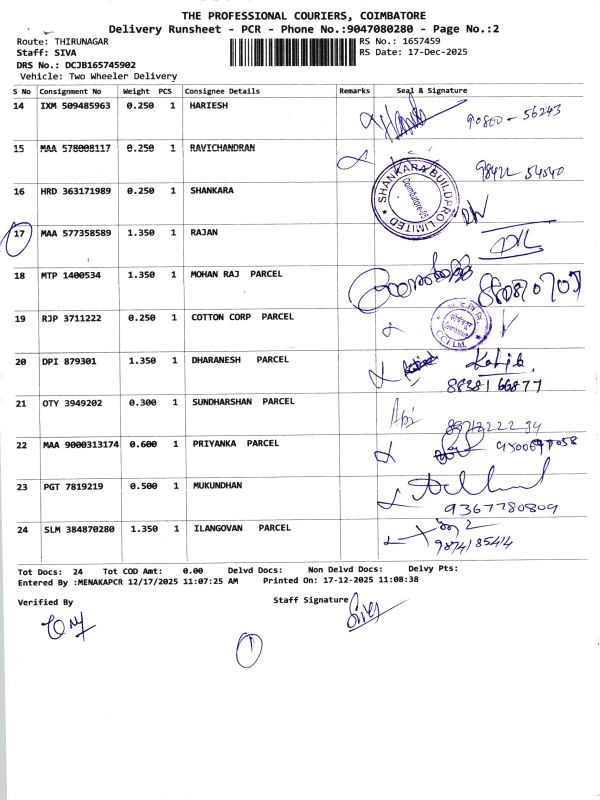 THE PROFESSIONAL COURIERS, COIMBATORE
Delivery Runsheet - PCR - Phone No.:9047080280 - Page No.:2
Route: THIRUNAGAR RS No.: 1657459
Staff: SIVA RS Date: 17-Dec-2025
DRS No.: DCJB165745902
Vehicle: Two Wheeler Delivery
S No Consignment No Weight PCS Consignee Details Remarks Seal & Signature
14 IXM 509485963 0.250 1 HARIESH 90800-56243
15 MAA 578008117 0.250 1 RAVICHANDRAN 98422 54540
16 HRD 363171989 0.250 1 SHANKARA
SHANKARA BUILDPRO LIMITED
Coimbatore-05
17 MAA 577358589 1.350 1 RAJAN
18 MTP 1400534 1.350 1 MOHAN RAJ PARCEL
19 RJP 3711222 0.250 1 COTTON CORP PARCEL
20 DPI 879301 1.350 1 DHARANESH PARCEL
8838166877
21 OTY 3949202 0.300 1 SUNDHARSHAN PARCEL
22 MAA 9000313174 0.600 1 PRIYANKA PARCEL
23 PGT 7819219 0.500 1 MUKUNDHAN
9367780809
24 SLM 384870280 1.350 1 ILANGOVAN PARCEL
9874185414
Tot Docs: 24 Tot COD Amt: 0.00 Delvd Docs: Non Delvd Docs: Delvy Pts:
Entered By :MENAKAPCR 12/17/2025 11:07:25 AM Printed On: 17-12-2025 11:08:38
Verified By Staff Signature
Siva
1